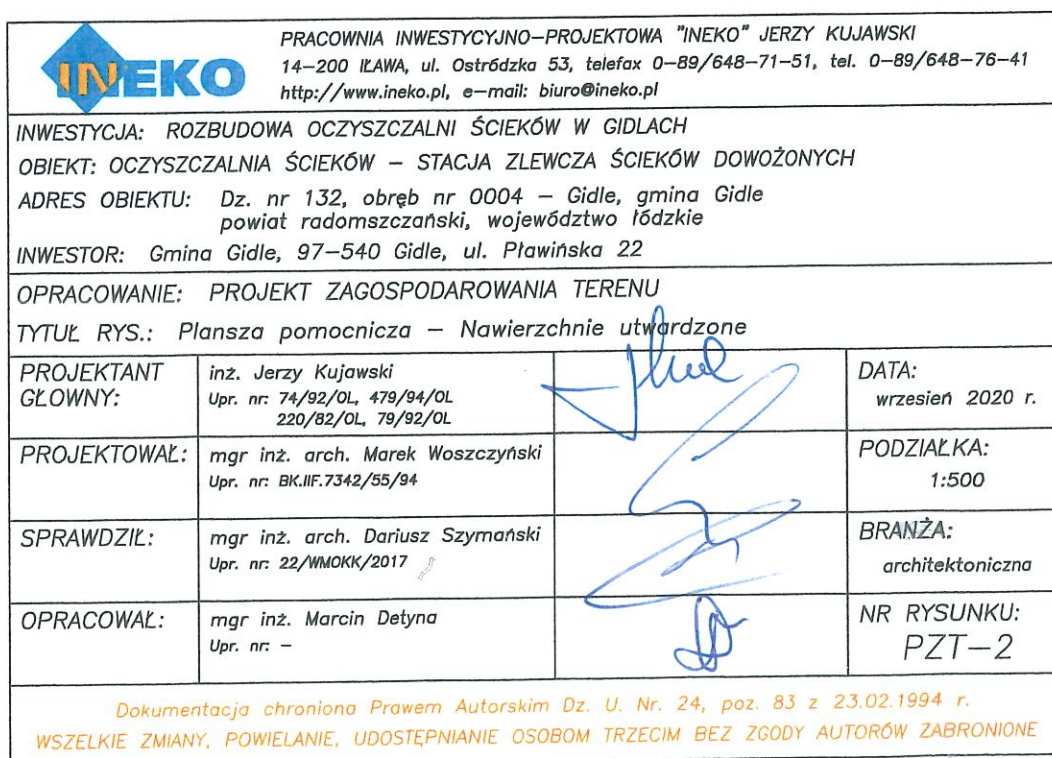 INEKO
PRACOWNIA INWESTYCYJNO-PROJEKTOWA "INEKO" JERZY KUJAWSKI
14-200 IŁAWA, ul. Ostródzka 53, telefax 0-89/648-71-51, tel. 0-89/648-76-41
http://www.ineko.pl, e-mail: biuro@ineko.pl
INWESTYCJA: ROZBUDOWA OCZYSZCZALNI ŚCIEKÓW W GIDLACH
OBIEKT: OCZYSZCZALNIA ŚCIEKÓW – STACJA ZLEWCZA ŚCIEKÓW DOWOŻONYCH
ADRES OBIEKTU: Dz. nr 132, obręb nr 0004 – Gidle, gmina Gidle
powiat radomszczański, województwo łódzkie
INWESTOR: Gmina Gidle, 97-540 Gidle, ul. Pławińska 22
OPRACOWANIE: PROJEKT ZAGOSPODAROWANIA TERENU
TYTUŁ RYS.: Plansza pomocnicza – Nawierzchnie utwardzone
PROJEKTANT GŁOWNY:
inż. Jerzy Kujawski
Upr. nr: 74/92/OL, 479/94/OL
220/82/OL, 79/92/OL
DATA:
wrzesień 2020 r.
PROJEKTOWAŁ:
mgr inż. arch. Marek Woszczyński
Upr. nr: BK.IIF.7342/55/94
PODZIAŁKA:
1:500
SPRAWDZIŁ:
mgr inż. arch. Dariusz Szymański
Upr. nr: 22/WMOKK/2017
BRANŻA:
architektoniczna
OPRACOWAŁ:
mgr inż. Marcin Detyna
Upr. nr: –
NR RYSUNKU:
PZT-2
Dokumentacja chroniona Prawem Autorskim Dz. U. Nr. 24, poz. 83 z 23.02.1994 r.
WSZELKIE ZMIANY, POWIELANIE, UDOSTĘPNIANIE OSOBOM TRZECIM BEZ ZGODY AUTORÓW ZABRONIONE